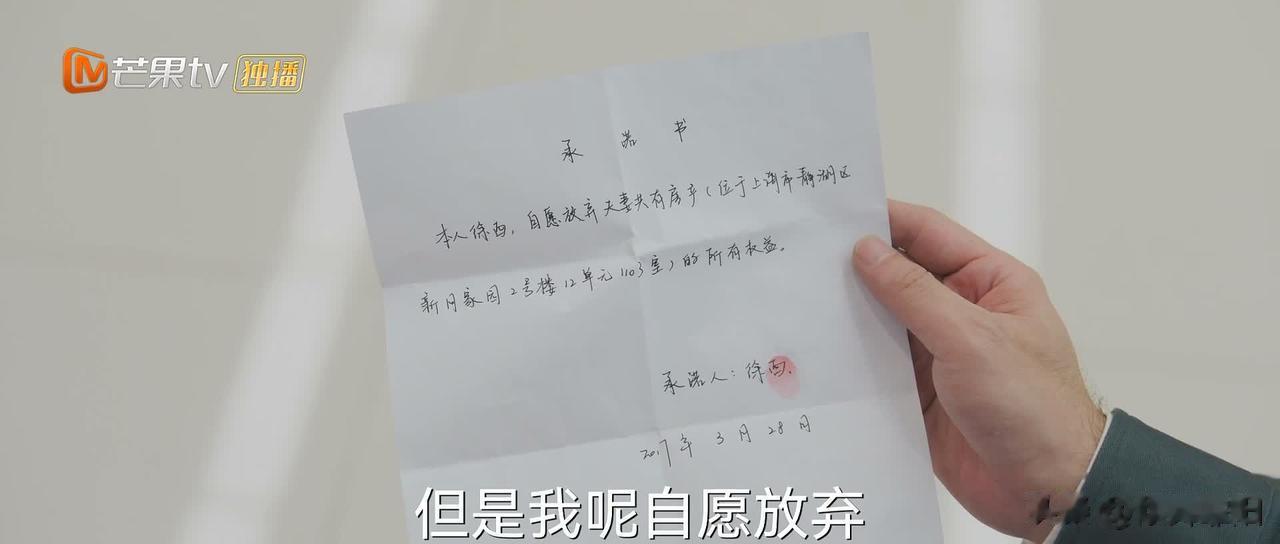 芒果tv 独播
承诺书
本人徐西，自愿放弃夫妻共有房产（位于上海市静湖区
新月家园2号楼12单元1103室）的所有权益。
承诺人：徐西
2017年3月28日
但是我呢自愿放弃